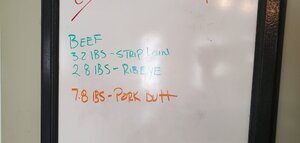 BEEF
3.2 lBS - STRIP LOIN
2.8 lBS - RIBEYE
7.8 lBS - PORK BUTT